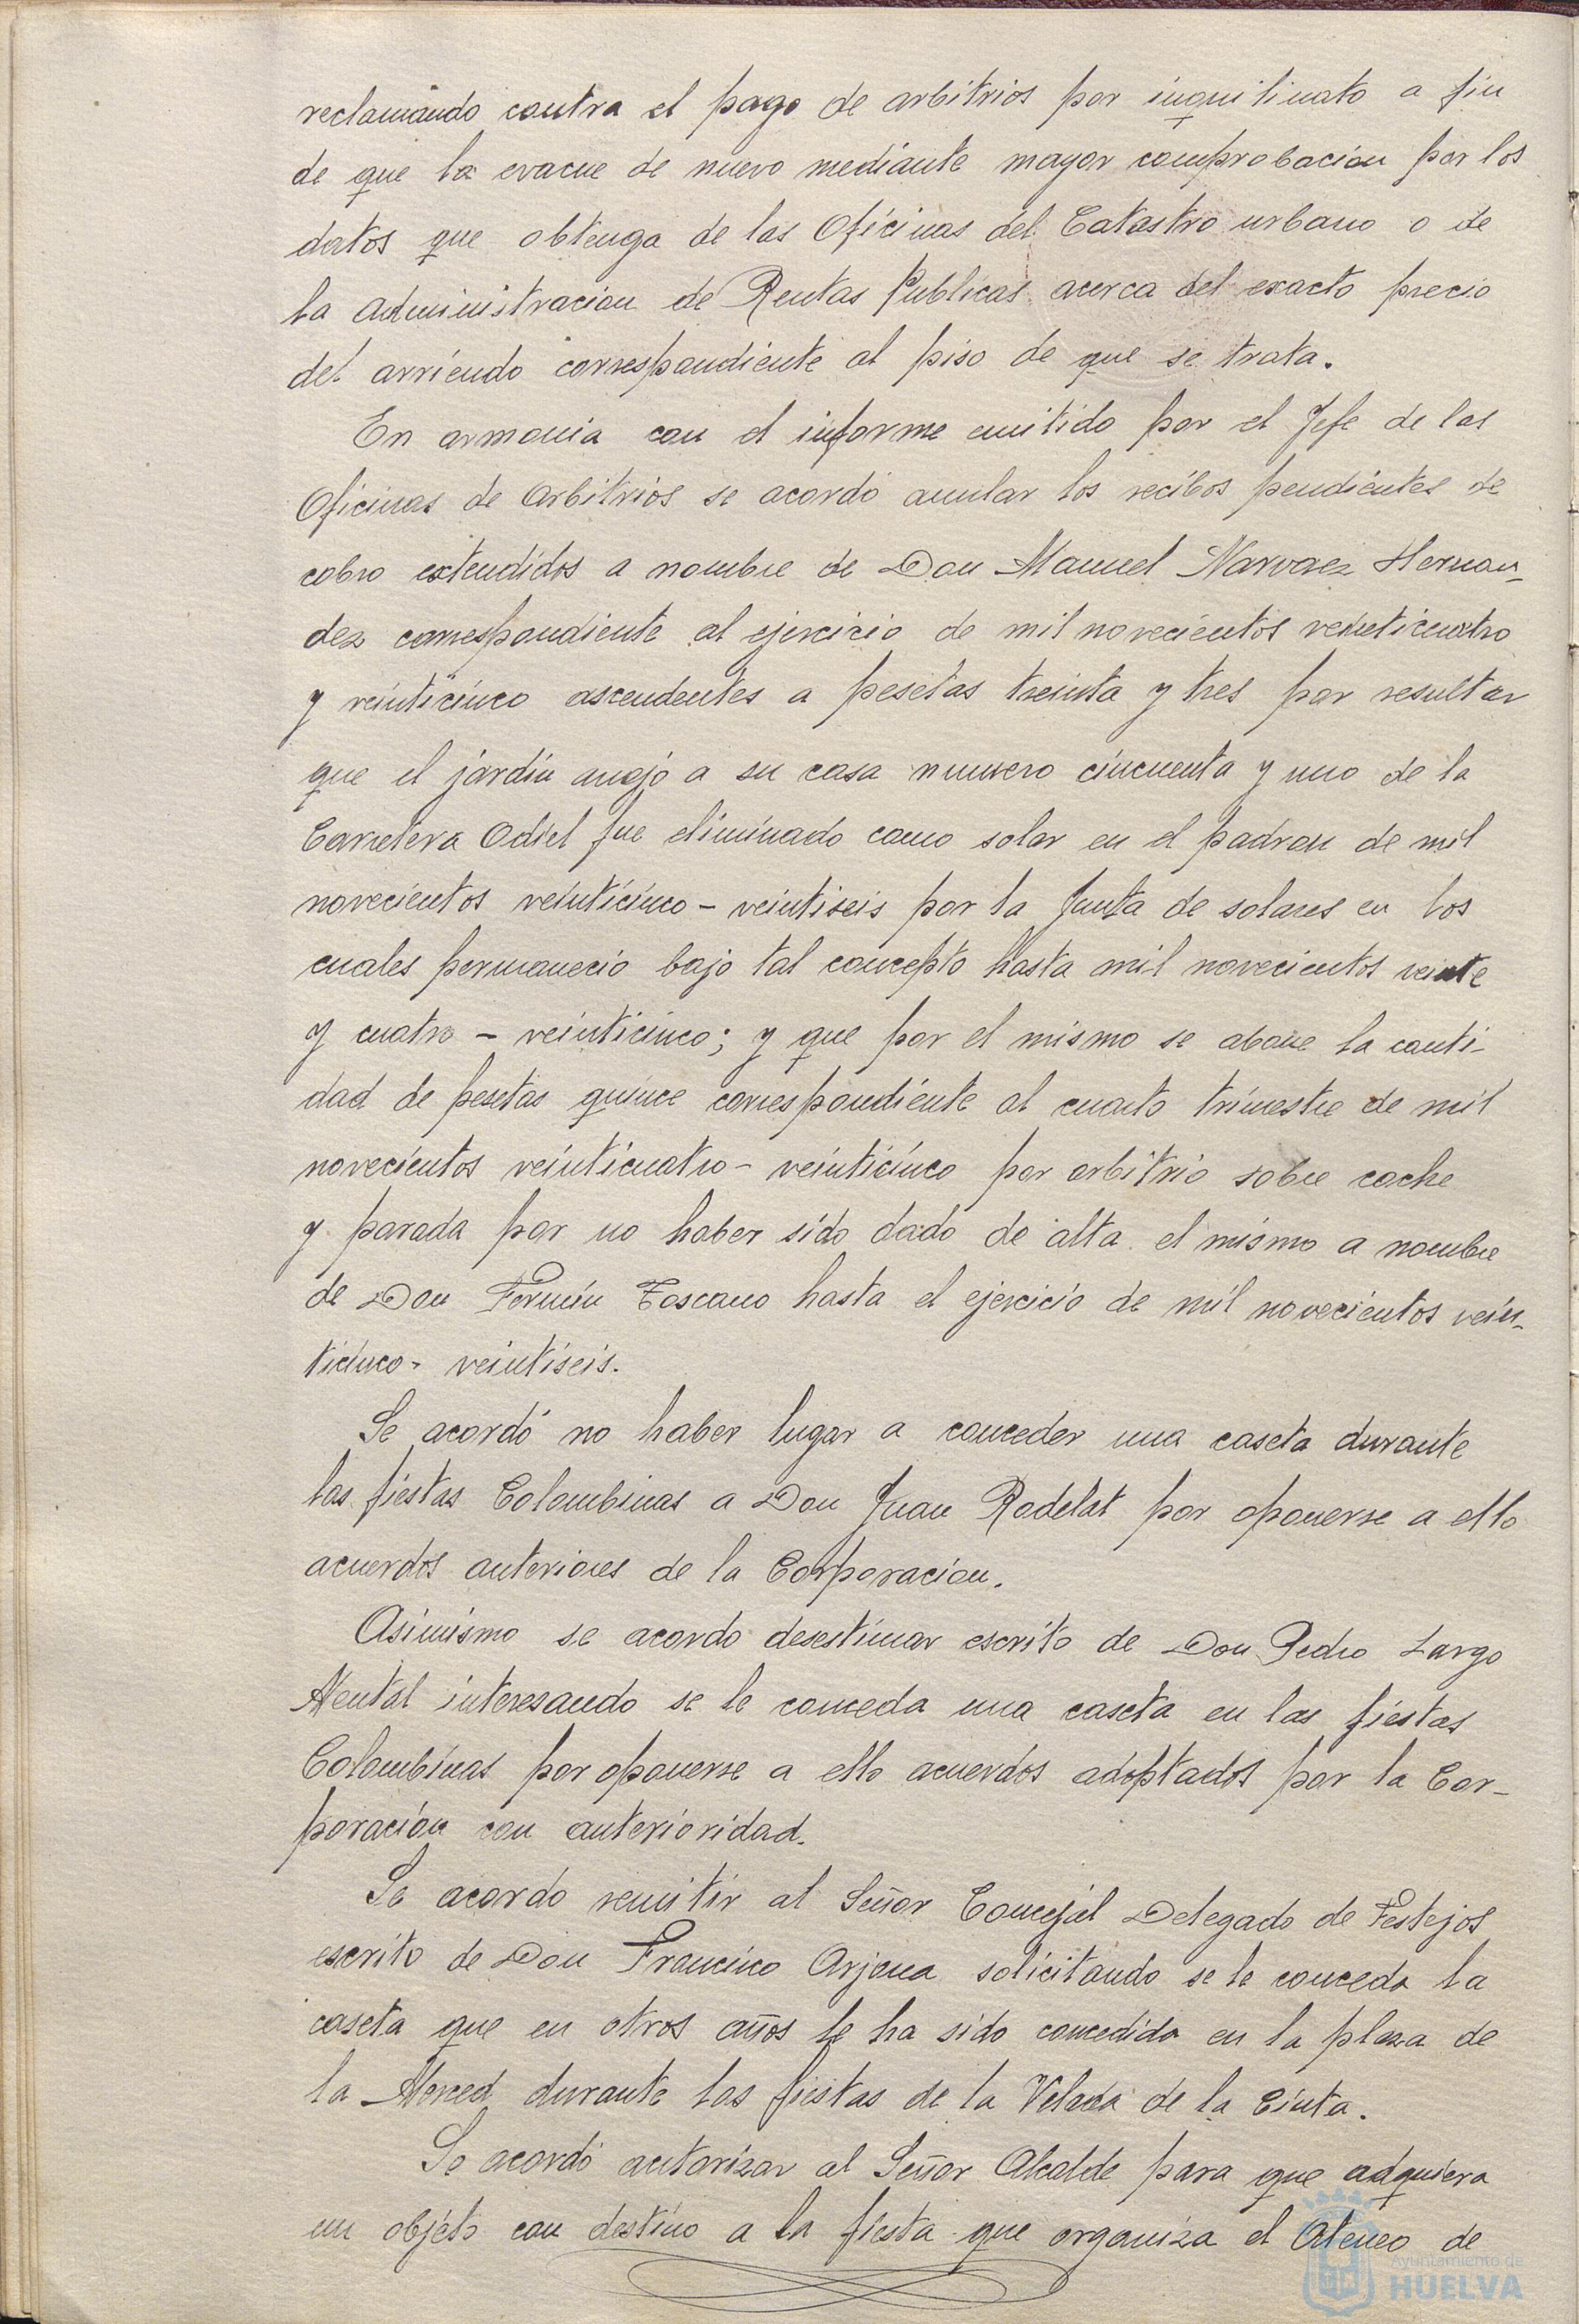 reclamando contra el pago de arbitrios por inquilinato a fin
de que la evacue de nuevo mediante mayor comprobacion por los
datos que obtenga de las Oficinas del Catastro urbano o de
la administracion de Rentas Publicas acerca del exacto precio
del arriendo correspondiente al piso de que se trata.
En armonia con el informe emitido por el Jefe de las
Oficinas de Arbitrios se acordó anular los recibos pendientes de
cobro extendidos a nombre de Don Manuel Narvaez Hernan-
dez correspondiente al ejercicio de mil novecientos veinticuatro
y veinticinco ascendentes a pesetas treinta y tres por resultar
que el jardin anejo a su casa numero cincuenta y uno de la
Carretera Odiel fue eliminado como solar en el padron de mil
novecientos veinticinco - veintiseis por la Junta de solares en los
cuales permanecio bajo tal concepto hasta mil novecientos veinte
y cuatro - veinticinco; y que por el mismo se abone la canti-
dad de pesetas quince correspondiente al cuarto trimestre de mil
novecientos veinticuatro - veinticinco por arbitrio sobre coche
y parada por no haber sido dado de alta el mismo a nombre
de Don Fermin Toscano hasta el ejercicio de mil novecientos vein-
ticinco - veintiseis.
Se acordó no haber lugar a conceder una caseta durante
las fiestas Colombinas a Don Juan Rodelat por oponerse a ello
acuerdos anteriores de la Corporacion.
Asimismo se acordo desestimar escrito de Don Pedro Largo
Mental interesando se le conceda una caseta en las fiestas
Colombinas por oponerse a ello acuerdos adoptados por la Cor-
poración con anterioridad.
Se acordo remitir al Señor Concejal Delegado de Festejos
escrito de Don Francisco Arjona solicitando se le conceda la
caseta que en otros años le ha sido concedida en la plaza de
la Merced durante las fiestas de la Velada de la Cinta.
Se acordó autorizar al Señor Alcalde para que adquiera
un objeto con destino a la fiesta que organiza el Ateneo de
Ayuntamiento de
HUELVA